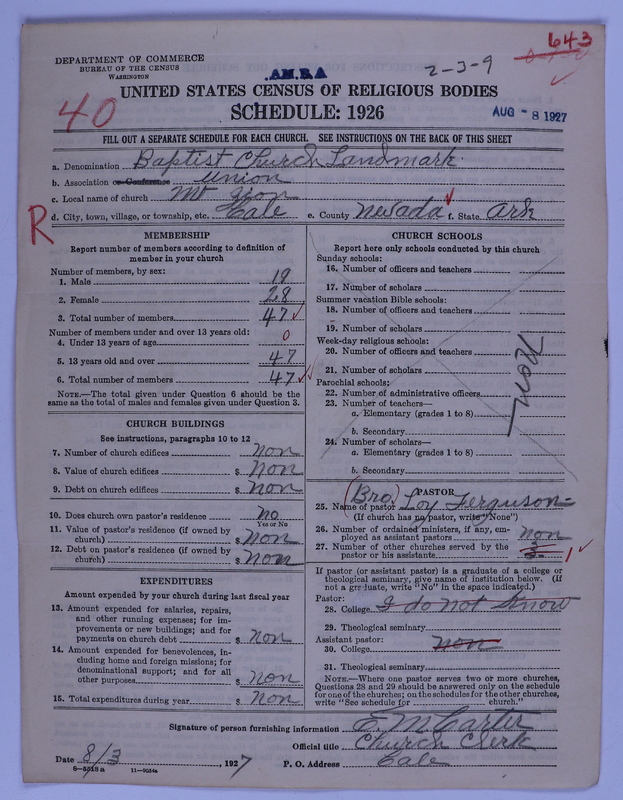 643
DEPARTMENT OF COMMERCE
BUREAU OF THE CENSUS
WASHINGTON
A.M.B.A
2-3-9
UNITED STATES CENSUS OF RELIGIOUS BODIES
40
SCHEDULE: 1926
AUG - 8 1927
FILL OUT A SEPARATE SCHEDULE FOR EACH CHURCH. SEE INSTRUCTIONS ON THE BACK OF THIS SHEET
a. Denomination Baptist Church Landmark
b. Association or Conference Union
c. Local name of church Mt Zion
R
d. City, town, village, or township, etc. Cale e. County Nevada f. State Ark
MEMBERSHIP
Report number of members according to definition of
member in your church
Number of members, by sex:
1. Male 19
2. Female 28
3. Total number of members 47
Number of members under and over 13 years old:
4. Under 13 years of age 0
5. 13 years old and over 47
6. Total number of members 47
NOTE.—The total given under Question 6 should be
same as the total of males and females given under Question 3.
CHURCH BUILDINGS
See instructions, paragraphs 10 to 12
7. Number of church edifices non
8. Value of church edifices $ Non
9. Debt on church edifices $ Non
10. Does church own pastor's residence No
Yes or No
11. Value of pastor's residence (if owned by
church) $ Non
12. Debt on pastor's residence (if owned by
church) $ Non
EXPENDITURES
Amount expended by your church during last fiscal year
13. Amount expended for salaries, repairs,
and other running expenses; for im-
provements or new buildings; and for
payments on church debt $ non
14. Amount expended for benevolences, in-
cluding home and foreign missions; for
denominational support; and for all
other purposes $ non
15. Total expenditures during year $ Non
CHURCH SCHOOLS
Report here only schools conducted by this church
Sunday schools:
16. Number of officers and teachers
17. Number of scholars
Summer vacation Bible schools:
18. Number of officers and teachers
19. Number of scholars
Week-day religious schools:
20. Number of officers and teachers
21. Number of scholars
Parochial schools:
22. Number of administrative officers
23. Number of teachers—
a. Elementary (grades 1 to 8)
b. Secondary
24. Number of scholars—
a. Elementary (grades 1 to 8)
b. Secondary
Non
PASTOR
25. Name of pastor (Bro.) Loy Ferguson
(If church has no pastor, write "None")
26. Number of ordained ministers, if any, em-
ployed as assistant pastors non
27. Number of other churches served by the
pastor or his assistants 3 1
If pastor (or assistant pastor) is a graduate of a college or
theological seminary, give name of institution below. (If
not a graduate, write "No" in the space indicated.)
Pastor:
28. College I do not Know
29. Theological seminary
Assistant pastor:
30. College non
31. Theological seminary
NOTE.—Where one pastor serves two or more churches,
Questions 28 and 29 should be answered only on the schedule
for one of the churches; on the schedules for the other churches,
write "See schedule for church."
Signature of person furnishing information E. M. Carter
Official title Church Clerk
Date 8/3, 1927 P. O. Address Cale
11—9034a